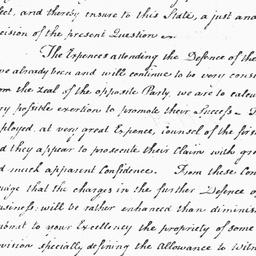 ect, and thereby ensure to this State, a just and
cision of the present Question.
The Expences attending the Defence of the
ve already been and will continue to be very cons
rom the zeal of the opposite Party, we are to calcu
ry possible exertion to promote their Success.
ployed, at very great Expence, counsel of the first
d they appear to prosecute their Claim with gre
d much apparent Confidence. From these Con
that the charges in the further Defence o
usiness, will be rather enhanced than diminis
to your Excellency the propriety of some
vision specially defining the Allowance to Witn